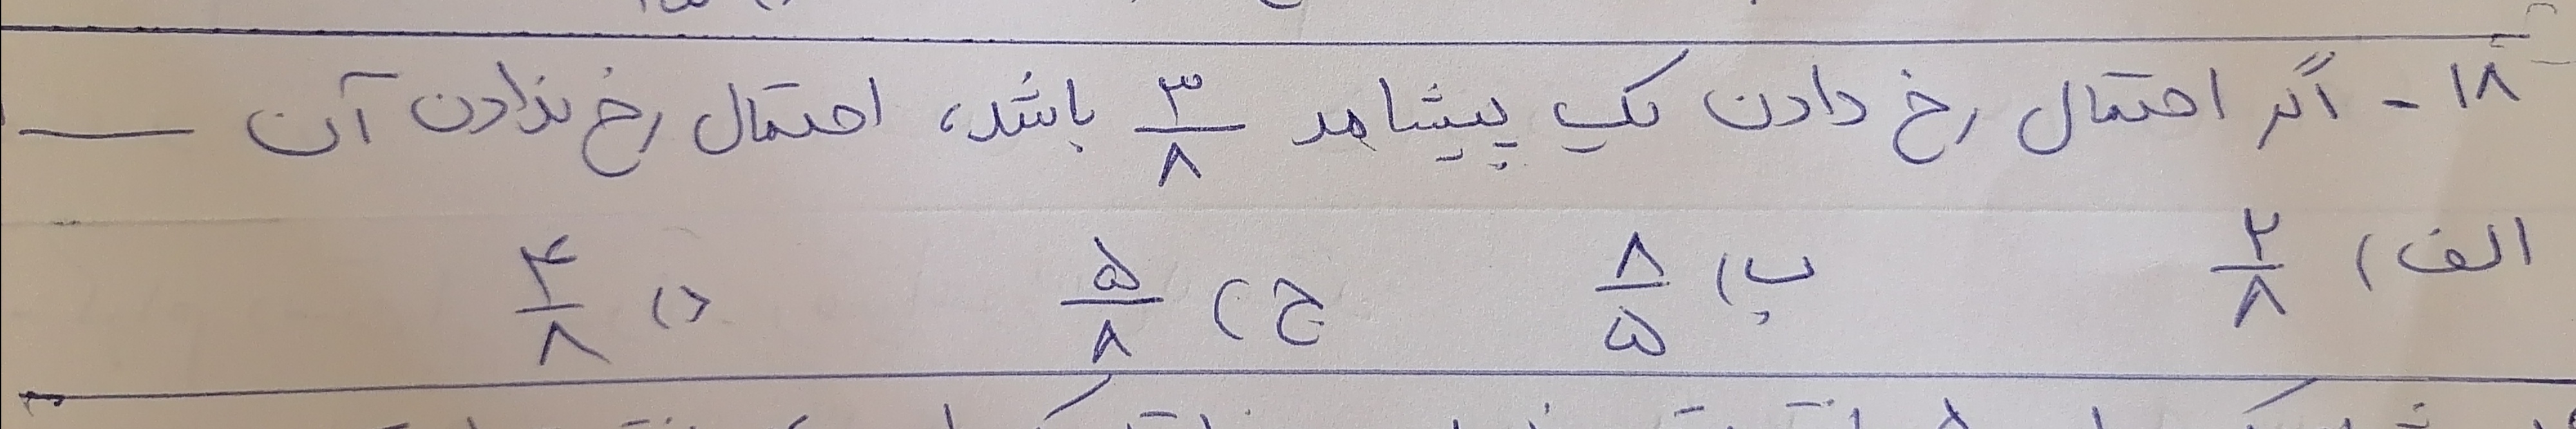 ۱۸ - اگر احتمال رخ دادن یک پیشامد ۳/۸ باشد، احتمال رخ ندادن آن ــــ
الف) ۲/۸ ب) ۸/۵ ج) ۵/۸ د) ۴/۸